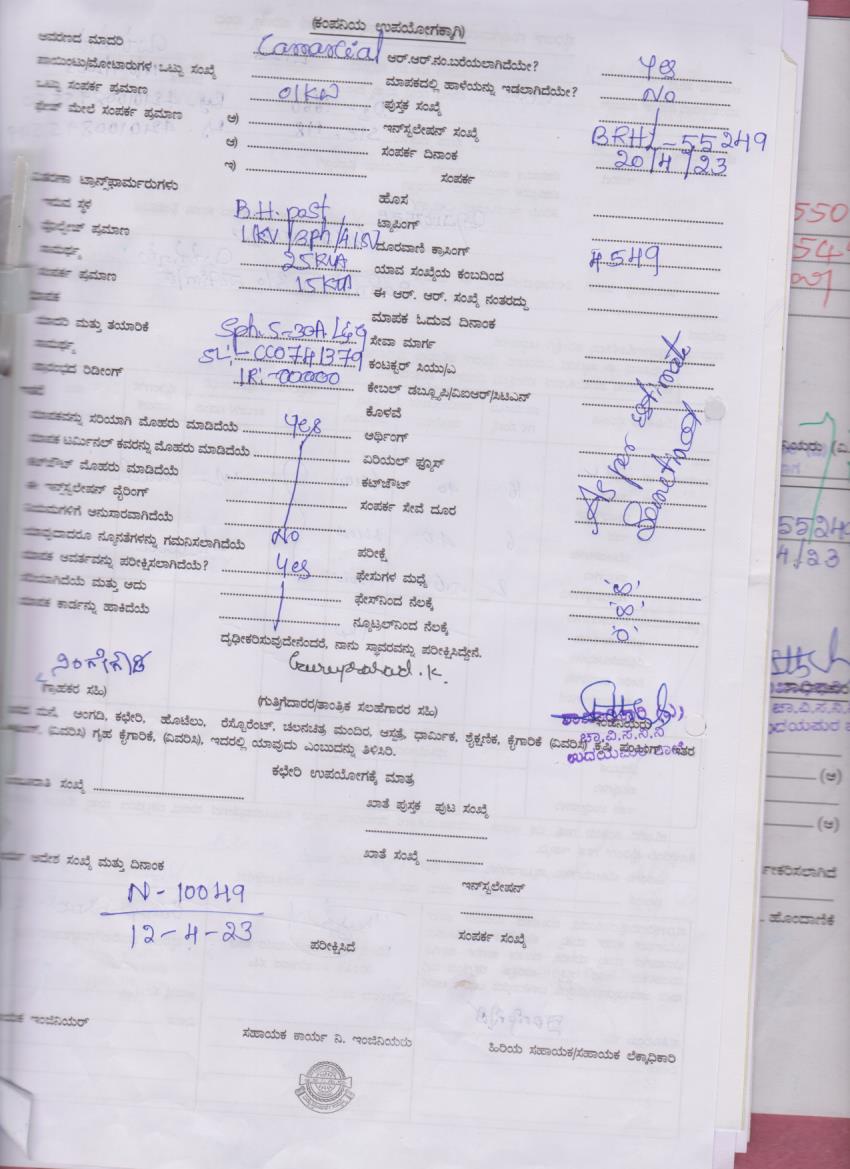 (ಕಂಪನಿಯ ಉಪಯೋಗಕ್ಕಾಗಿ)
ಆವರಣದ ಮಾದರಿ ಆರ್.ಆರ್.ನಂ.ಬರೆಯಲಾಗಿದೆಯೇ? Yes
ಪಾಯಿಂಟು/ಮೋಟಾರುಗಳ ಒಟ್ಟು ಸಂಖ್ಯೆ ಮಾಪಕದಲ್ಲಿ ಹಾಳೆಯನ್ನು ಇಡಲಾಗಿದೆಯೇ? No
ಒಟ್ಟು ಸಂಪರ್ಕ ಪ್ರಮಾಣ 01KW ಪುಸ್ತಕ ಸಂಖ್ಯೆ
ಫೇಜ್ ಮೇಲೆ ಸಂಪರ್ಕ ಪ್ರಮಾಣ ಅ) ಇನ್‌ಸ್ಟಲೇಷನ್ ಸಂಖ್ಯೆ BRHL-55249
ಆ) ಸಂಪರ್ಕ ದಿನಾಂಕ 20/4/23
ಇ) ಸಂಪರ್ಕ
ಟ್ರಾನ್ಸ್‌ಫಾರ್ಮರುಗಳು ಹೊಸ
ಇರುವ ಸ್ಥಳ B.H. post ಟ್ಯಾಪಿಂಗ್
ವೋಲ್ಟೇಜ್ ಪ್ರಮಾಣ ದೂರವಾಣಿ ಕ್ರಾಸಿಂಗ್
ಸಾಮರ್ಥ್ಯ 25KVA ಯಾವ ಸಂಖ್ಯೆಯ ಕಂಬದಿಂದ 4549
ಸಂಪರ್ಕ ಪ್ರಮಾಣ 15KVA ಈ ಆರ್. ಆರ್. ಸಂಖ್ಯೆ ನಂತರದ್ದು
ಮಾಪಕ ಓದುವ ದಿನಾಂಕ
ಮಾದರಿ ಮತ್ತು ತಯಾರಿಕೆ ಸೇವಾ ಮಾರ್ಗ
ಸಾಮರ್ಥ್ಯ SL:- CC0741379 ಕಂಟಕ್ಟರ್ ಸಿಯು/ಎ
ರಿಡೀಂಗ್ IR:-00000 ಕೇಬಲ್ ಡಬ್ಲ್ಯೂಪಿ/ವಿಐಆರ್/ಸಿಟಿಎನ್
ಕೊಳವೆ
ಮಾಪಕವನ್ನು ಸರಿಯಾಗಿ ಮೊಹರು ಮಾಡಿದೆಯೆ Yes ಆರ್ಥಿಂಗ್
ಮಾಪಕ ಟರ್ಮಿನಲ್ ಕವರನ್ನು ಮೊಹರು ಮಾಡಿದೆಯೆ ಏರಿಯಲ್ ಫ್ಯೂಸ್
ಕಟ್‌ಔಟ್ ಮೊಹರು ಮಾಡಿದೆಯೆ ಕಟ್‌ಔಟ್
ಈ ಇನ್‌ಸ್ಟಲೇಷನ್ ವೈರಿಂಗ್ ಸಂಪರ್ಕ ಸೇವೆ ದೂರ
As per estimate
ನಿಯಮಗಳಿಗೆ ಅನುಸಾರವಾಗಿದೆಯೆ
ಯಾವುದಾದರೂ ನ್ಯೂನತೆಗಳನ್ನು ಗಮನಿಸಲಾಗಿದೆಯೆ No ಪರೀಕ್ಷೆ
ಮಾಪಕ ಆವರ್ತವನ್ನು ಪರೀಕ್ಷಿಸಲಾಗಿದೆಯೆ? Yes ಫೇಸುಗಳ ಮಧ್ಯೆ
ಮತ್ತು ಅದು ಫೇಸ್‌ನಿಂದ ನೆಲಕ್ಕೆ
ಮಾಪಕ ಕಾರ್ಡನ್ನು ಹಾಕಿದೆಯೆ ನ್ಯೂಟ್ರಲ್‌ನಿಂದ ನೆಲಕ್ಕೆ
ದೃಢೀಕರಿಸುವುದೇನೆಂದರೆ, ನಾನು ಸ್ಥಾವರವನ್ನು ಪರೀಕ್ಷಿಸಿದ್ದೇನೆ.
ನಿಂಗೇಗೌಡ
(ಗ್ರಾಹಕರ ಸಹಿ) (ಗುತ್ತಿಗೆದಾರರ/ತಾಂತ್ರಿಕ ಸಲಹೆಗಾರರ ಸಹಿ)
ಚಾ.ವಿ.ಸ.ನಿ.ನಿ
ಮನೆ, ಅಂಗಡಿ, ಕಛೇರಿ, ಹೊಟೇಲು, ರೆಸ್ಟೋರೆಂಟ್, ಚಲನಚಿತ್ರ ಮಂದಿರ, ಆಸ್ಪತ್ರೆ, ಧಾರ್ಮಿಕ, ಶೈಕ್ಷಣಿಕ, ಕೈಗಾರಿಕೆ (ವಿವರಿಸಿ) ಕೃಷಿ ಇತರ
(ವಿವರಿಸಿ) ಗೃಹ ಕೈಗಾರಿಕೆ, (ವಿವರಿಸಿ), ಇದರಲ್ಲಿ ಯಾವುದು ಎಂಬುದನ್ನು ತಿಳಿಸಿರಿ.
ಕಛೇರಿ ಉಪಯೋಗಕ್ಕೆ ಮಾತ್ರ
ಸಂಖ್ಯೆ ಖಾತೆ ಪುಸ್ತಕ ಪುಟ ಸಂಖ್ಯೆ
ಖಾತೆ ಸಂಖ್ಯೆ
ಆದೇಶ ಸಂಖ್ಯೆ ಮತ್ತು ದಿನಾಂಕ
ಇನ್‌ಸ್ಟಲೇಷನ್
N-10049
12-4-23
ಪರೀಕ್ಷಿಸಿದೆ ಸಂಪರ್ಕ ಸಂಖ್ಯೆ
ಇಂಜಿನಿಯರ್ ಸಹಾಯಕ ಕಾರ್ಯ ನಿ. ಇಂಜಿನಿಯರು ಹಿರಿಯ ಸಹಾಯಕ/ಸಹಾಯಕ ಲೆಕ್ಕಾಧಿಕಾರಿ